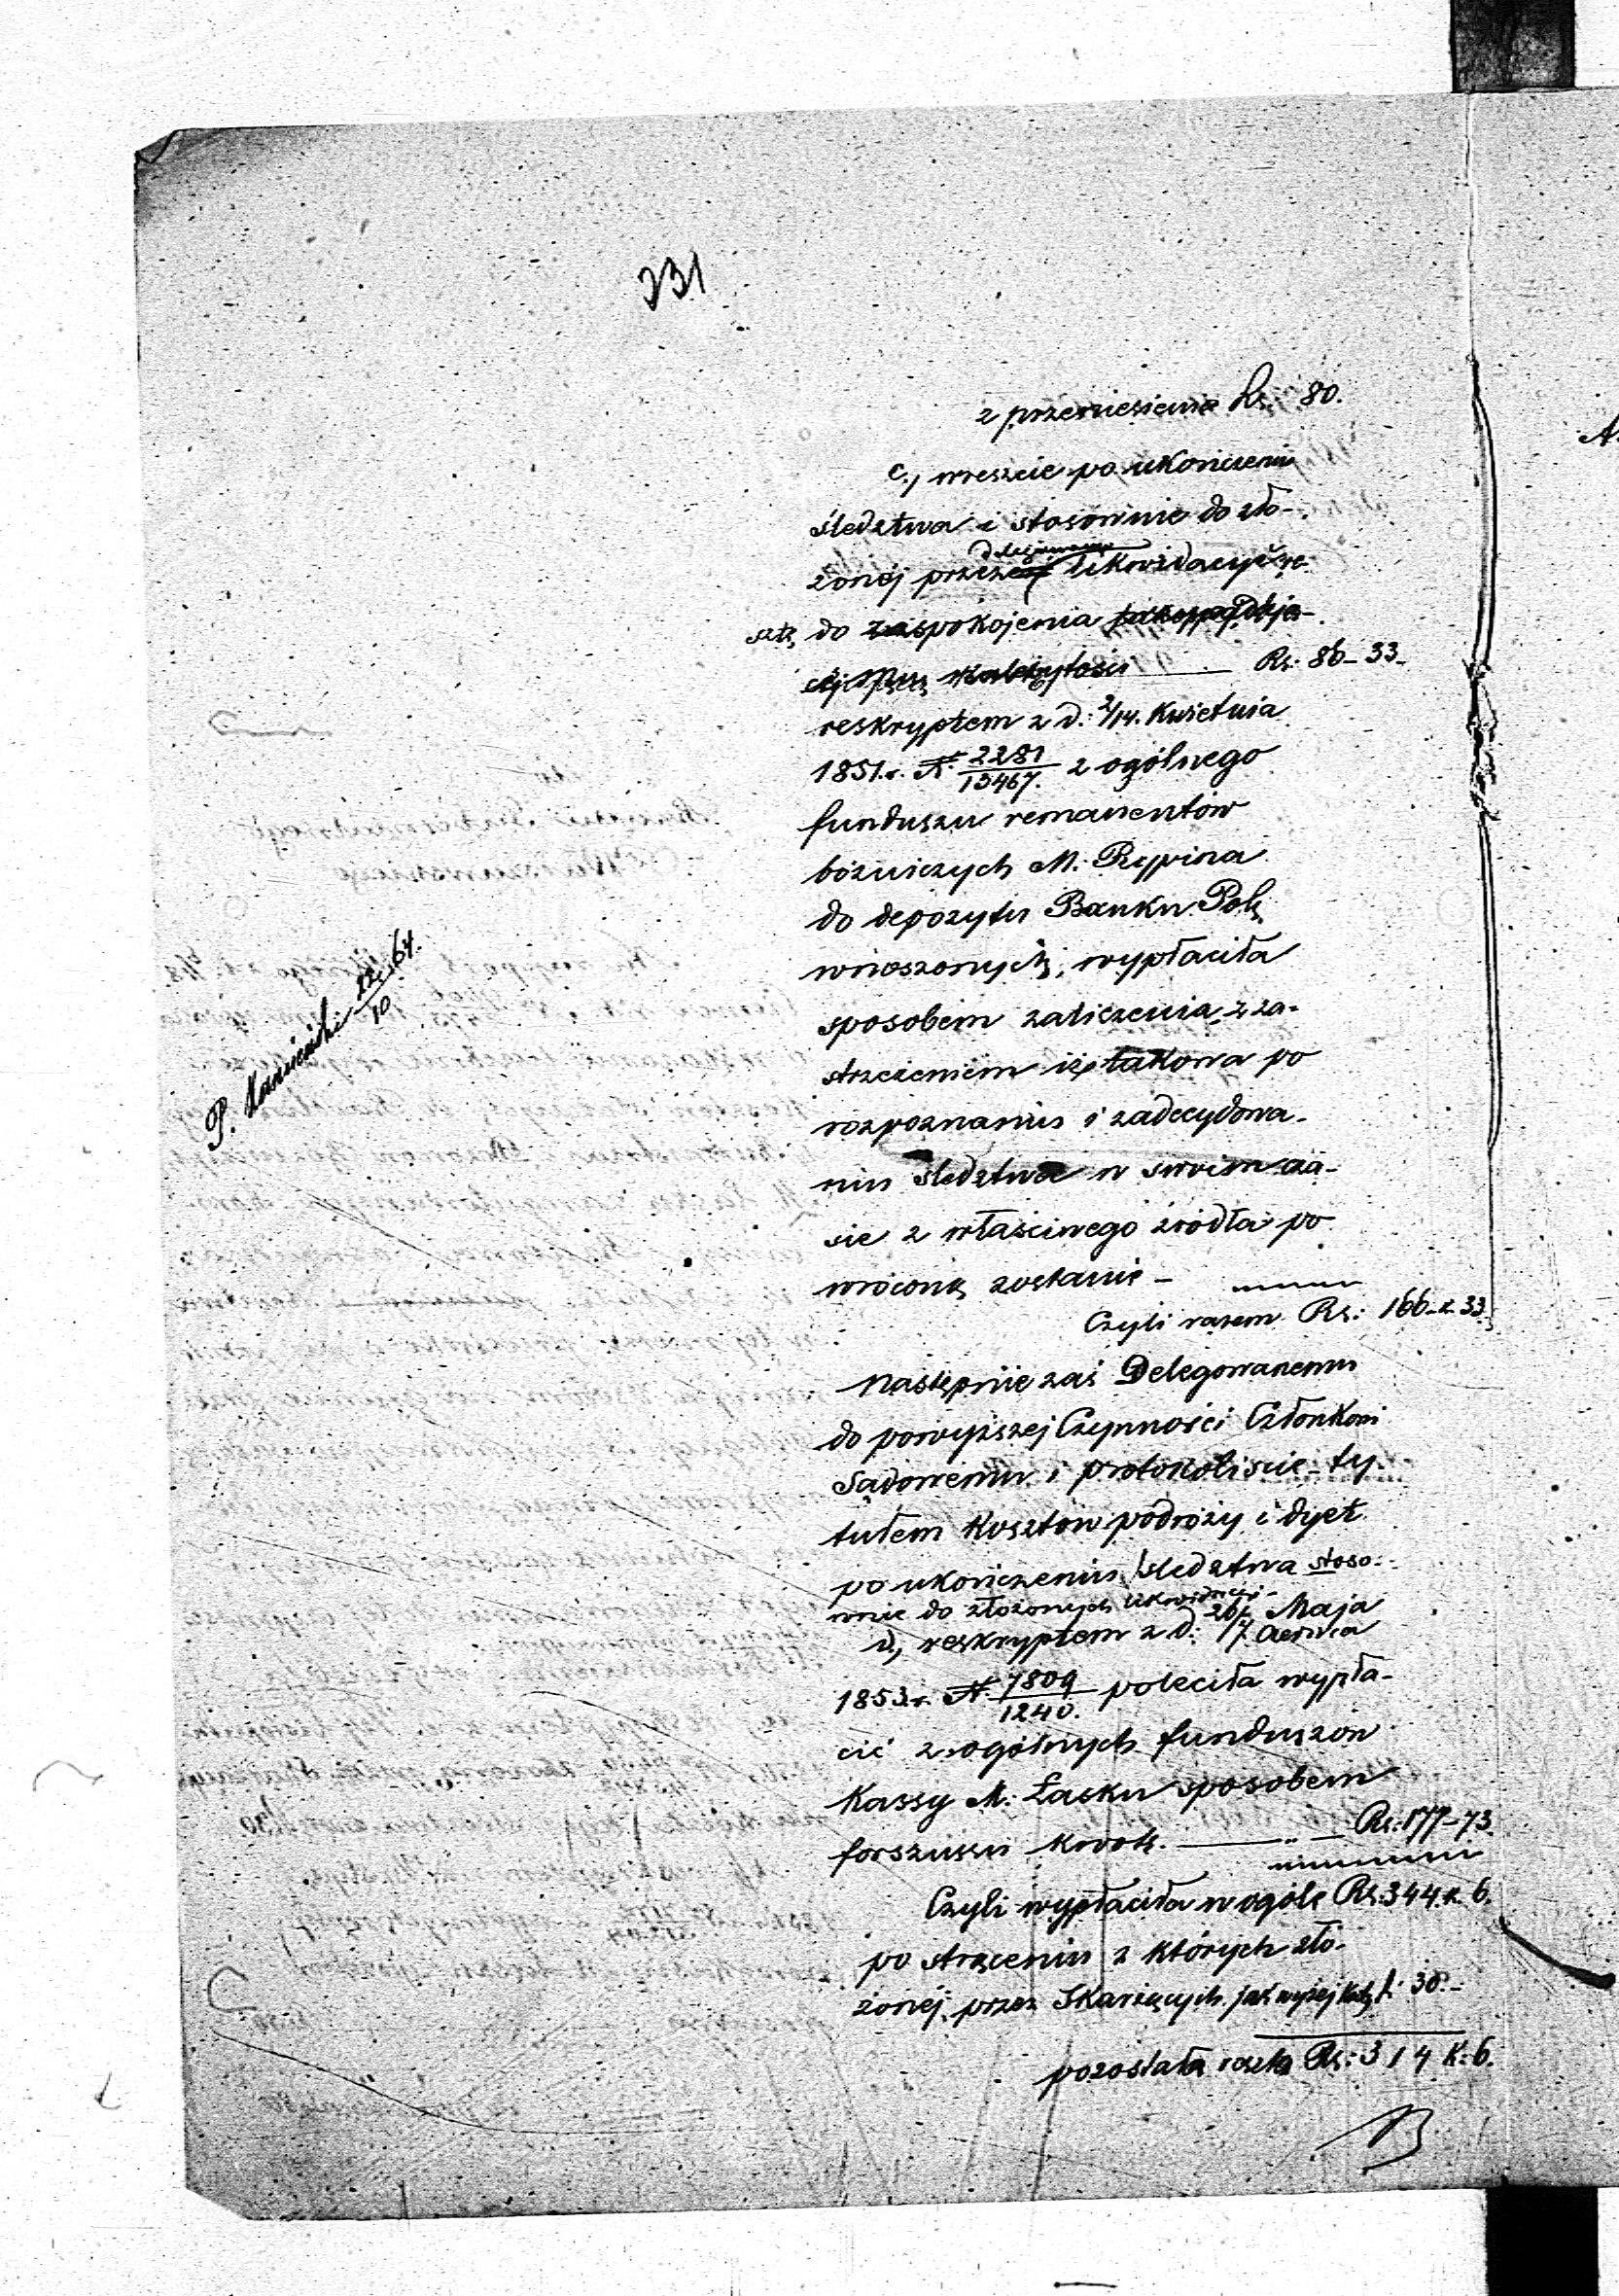 231
z przeniesienia Rs: 80.
c., wreszcie po ukończeniu
śledztwa i stosownie do zło-
żonéj przez delegowanego likwidacyi re-
sztę do zaspokojenia
Rs: 86-33-
reskryptem z d: 2/14. Kwietnia
1851.r. N. 2281/13467. z ogólnego
funduszu remanentów
bóżniczych M. Rypina
do depozytu Banku Pols
wnoszonych, wypłaciła
sposobem zaliczenia z za-
strzeżeniem iż takowa po
rozpoznaniu i zadecydowa-
niu śledztwa w swoim cza-
sie z właściwego źródła po
wróconą zostanie -
Czyli razem Rs: 166-k 33
Następnie zaś Delegowanemu
do powyższej Czynności Członkowi
Sądowemu i protokoliście ty-
tułem kosztów podróży i dyet
po ukończeniu śledztwa stoso-
wnie do złożonych likwidacyi-
d, reskryptem z d: 26/7 Maja/Czerwca
1853.r. N. 7809/1240. poleciła wypła-
cić z ogólnych funduszów
Kassy M. Łasku sposobem
forszusu kwotę. Rs: 177-73
Czyli wypłaciła w ogóle Rs: 344 k. 6.
po strąceniu z których zło-
żonéj przez Skarżących jak wyżej 30.-
pozostała reszta Rs: 314 k: 6.
P. Kamieński 22/10 64.